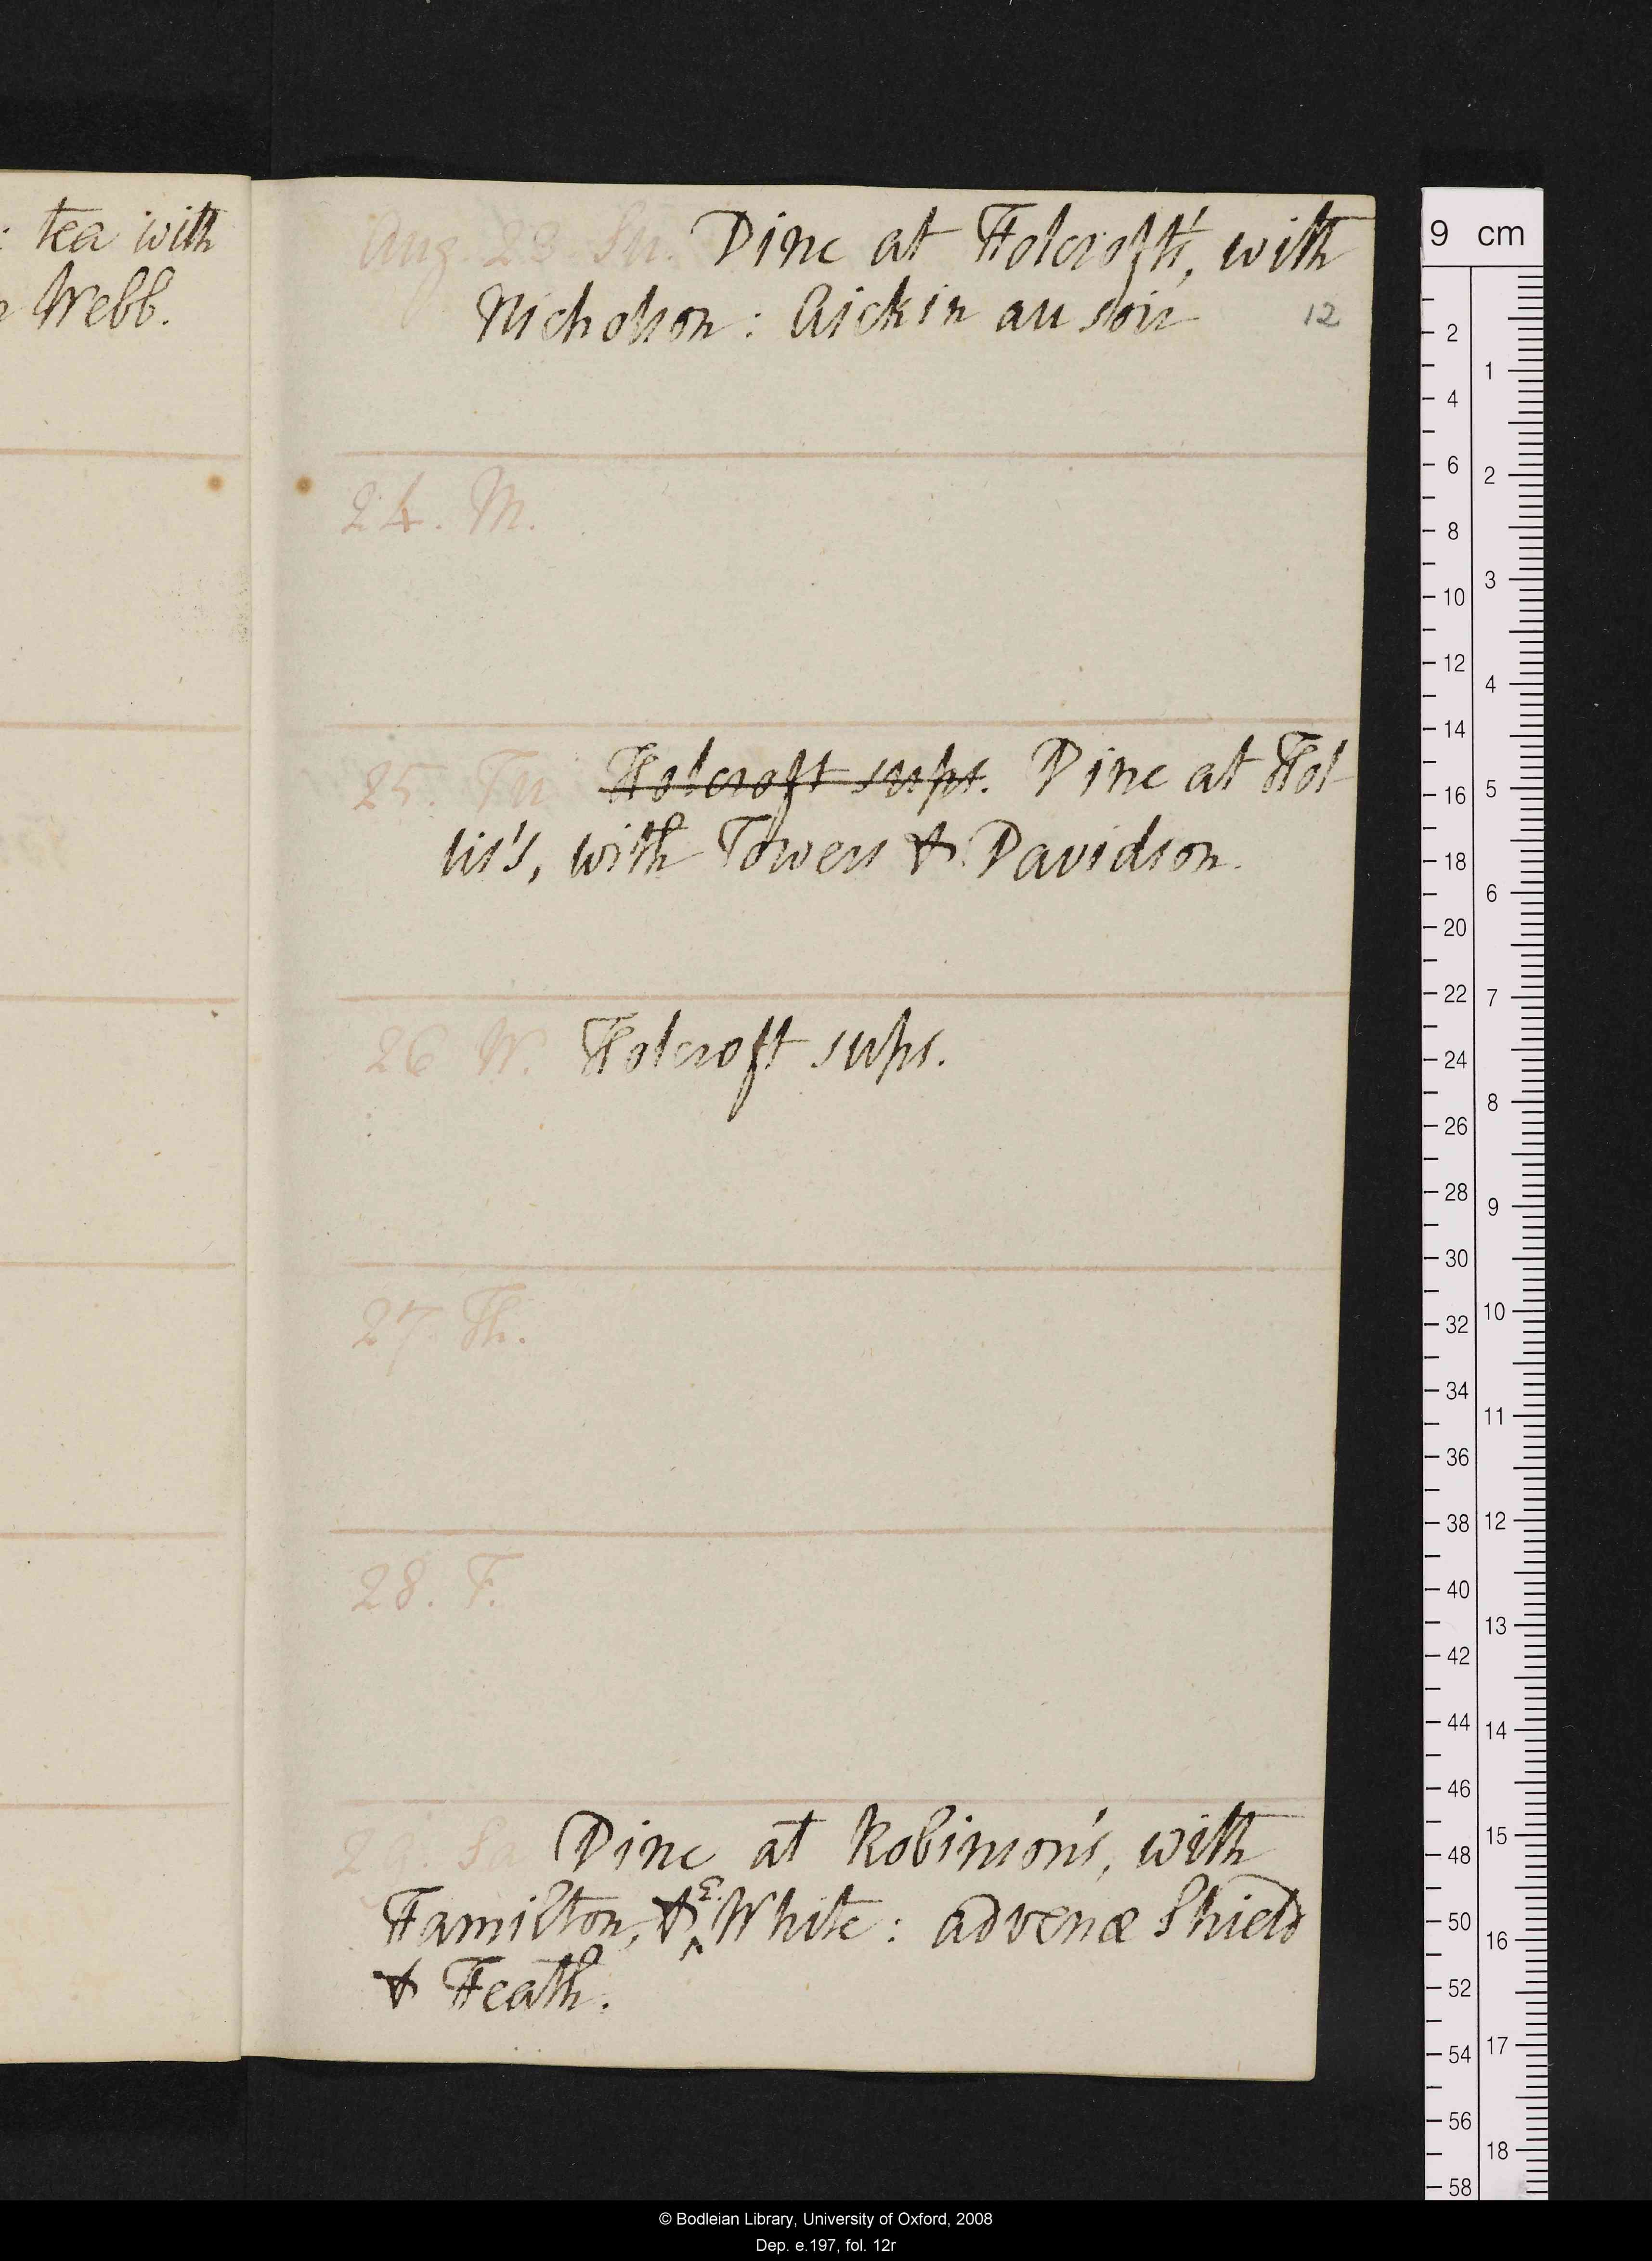 : tea with
Webb.
Aug. 23. Su. Dine at Holcroft's, with
Nicholson: Aickin au soir
12
24. M.
25. Tu Holcroft sups. Dine at Hol-
lis's, with Towers & Davidson.
26 W. Holcroft sups.
27. Th.
28. F.
29. Sa Dine at Robinson's, with
Hamilton, & E. White: advenæ Shield
& Heath.
9 cm
2
4
6
8
10
12
14
16
18
20
22
24
26
28
30
32
34
36
38
40
42
44
46
48
50
52
54
56
58
1
2
3
4
5
6
7
8
9
10
11
12
13
14
15
16
17
18
© Bodleian Library, University of Oxford, 2008
Dep. e.197, fol. 12r